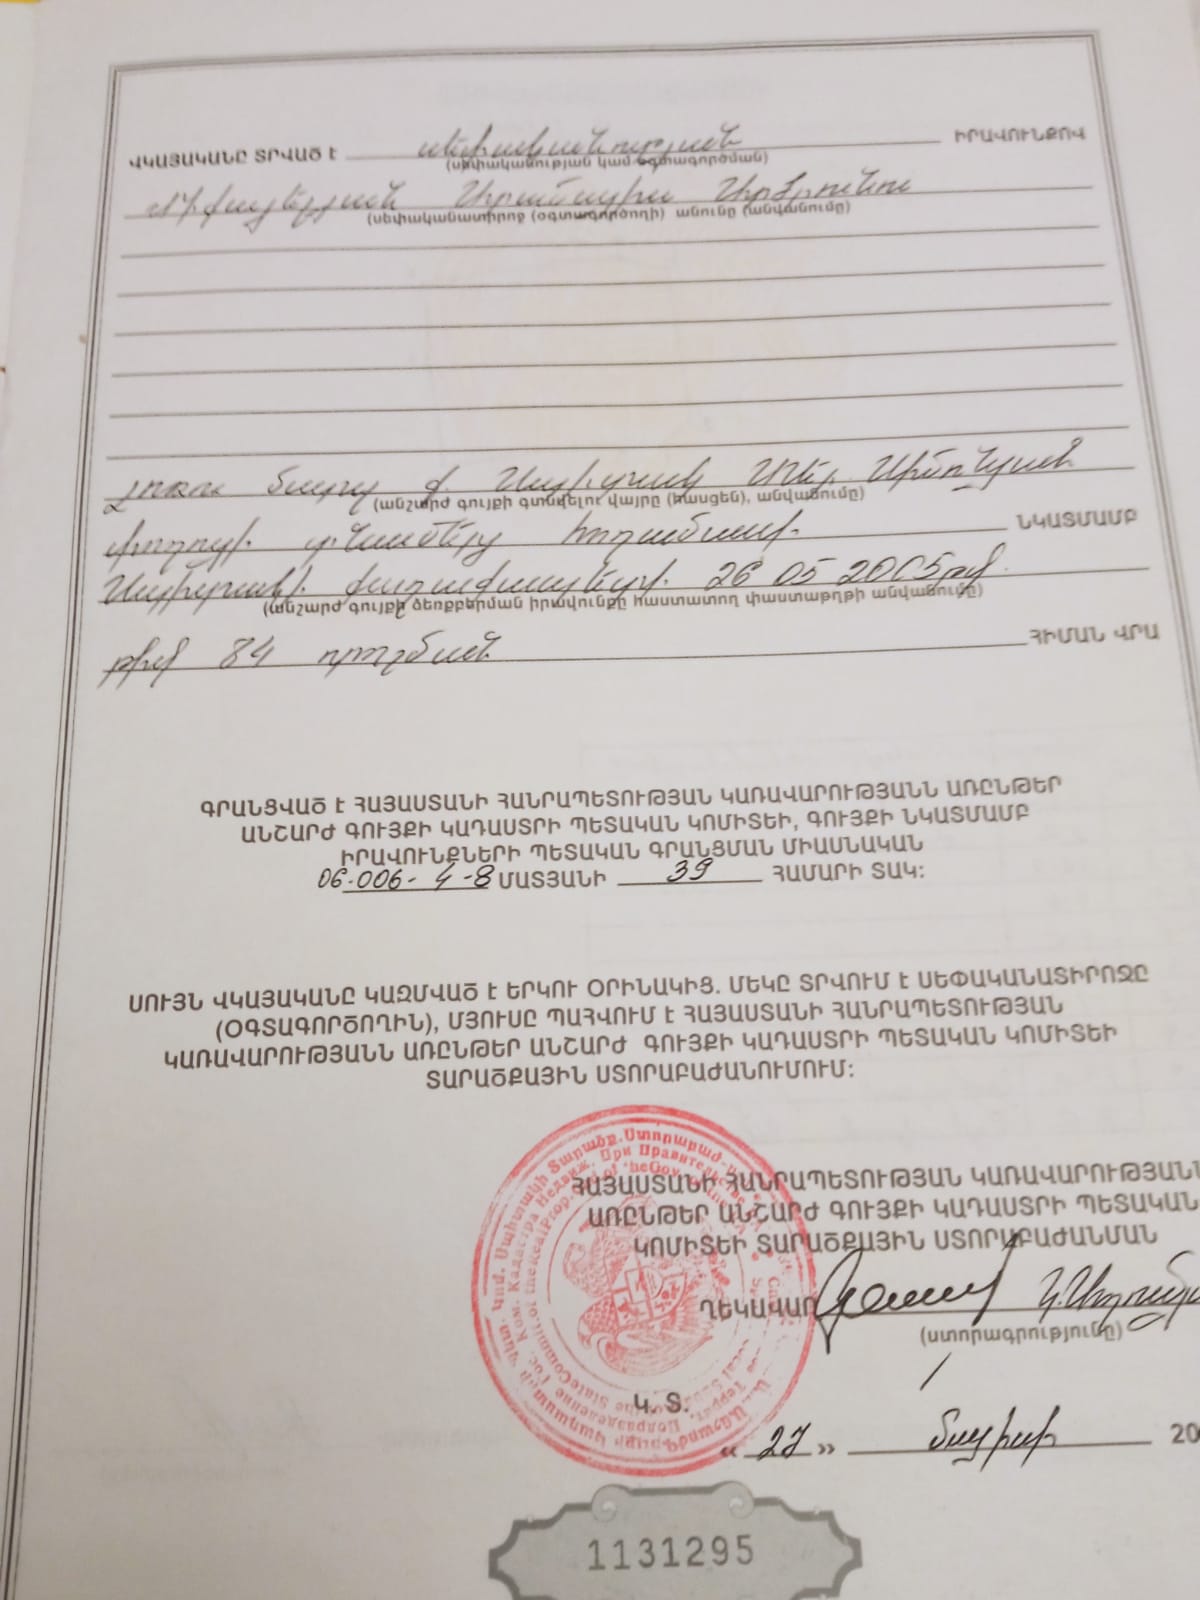 ՎԿԱՅԱԿԱՆԸ ՏՐՎԱԾ Է սեփականության ԻՐԱՎՈՒՆՔՈՎ
(սեփականության կամ օգտագործման)
(սեփականատիրոջ (օգտագործողի) անունը (անվանումը)
Լոռու մարզ ք Սպիտակ
(անշարժ գույքի գտնվելու վայրը (հասցեն), անվանումը)
փողոցի հողամաս ՆԿԱՏՄԱՄԲ
Սպիտակի քաղաքապետի 26 05 2005թ
(անշարժ գույքի ձեռքբերման իրավունքը հաստատող փաստաթղթի անվանումը)
թիվ 84 որոշման ՀԻՄԱՆ ՎՐԱ
ԳՐԱՆՑՎԱԾ Է ՀԱՅԱՍՏԱՆԻ ՀԱՆՐԱՊԵՏՈՒԹՅԱՆ ԿԱՌԱՎԱՐՈՒԹՅԱՆՆ ԱՌԸՆԹԵՐ
ԱՆՇԱՐԺ ԳՈՒՅՔԻ ԿԱԴԱՍՏՐԻ ՊԵՏԱԿԱՆ ԿՈՄԻՏԵԻ, ԳՈՒՅՔԻ ՆԿԱՏՄԱՄԲ
ԻՐԱՎՈՒՆՔՆԵՐԻ ՊԵՏԱԿԱՆ ԳՐԱՆՑՄԱՆ ՄԻԱՍՆԱԿԱՆ
06.006-4-8 ՄԱՏՅԱՆԻ 39 ՀԱՄԱՐԻ ՏԱԿ:
ՍՈՒՅՆ ՎԿԱՅԱԿԱՆԸ ԿԱԶՄՎԱԾ Է ԵՐԿՈՒ ՕՐԻՆԱԿԻՑ. ՄԵԿԸ ՏՐՎՈՒՄ Է ՍԵՓԱԿԱՆԱՏԻՐՈՋԸ
(ՕԳՏԱԳՈՐԾՈՂԻՆ), ՄՅՈՒՍԸ ՊԱՀՎՈՒՄ Է ՀԱՅԱՍՏԱՆԻ ՀԱՆՐԱՊԵՏՈՒԹՅԱՆ
ԿԱՌԱՎԱՐՈՒԹՅԱՆՆ ԱՌԸՆԹԵՐ ԱՆՇԱՐԺ ԳՈՒՅՔԻ ԿԱԴԱՍՏՐԻ ՊԵՏԱԿԱՆ ԿՈՄԻՏԵԻ
ՏԱՐԱԾՔԱՅԻՆ ՍՏՈՐԱԲԱԺԱՆՈՒՄՈՒՄ:
ՀԱՅԱՍՏԱՆԻ ՀԱՆՐԱՊԵՏՈՒԹՅԱՆ ԿԱՌԱՎԱՐՈՒԹՅԱՆՆ
ԱՌԸՆԹԵՐ ԱՆՇԱՐԺ ԳՈՒՅՔԻ ԿԱԴԱՍՏՐԻ ՊԵՏԱԿԱՆ
ԿՈՄԻՏԵԻ ՏԱՐԱԾՔԱՅԻՆ ՍՏՈՐԱԲԱԺԱՆՄԱՆ
ՂԵԿԱՎԱՐ
(ստորագրությունը)
Կ. Տ.
«27» մայիսի 20
1131295